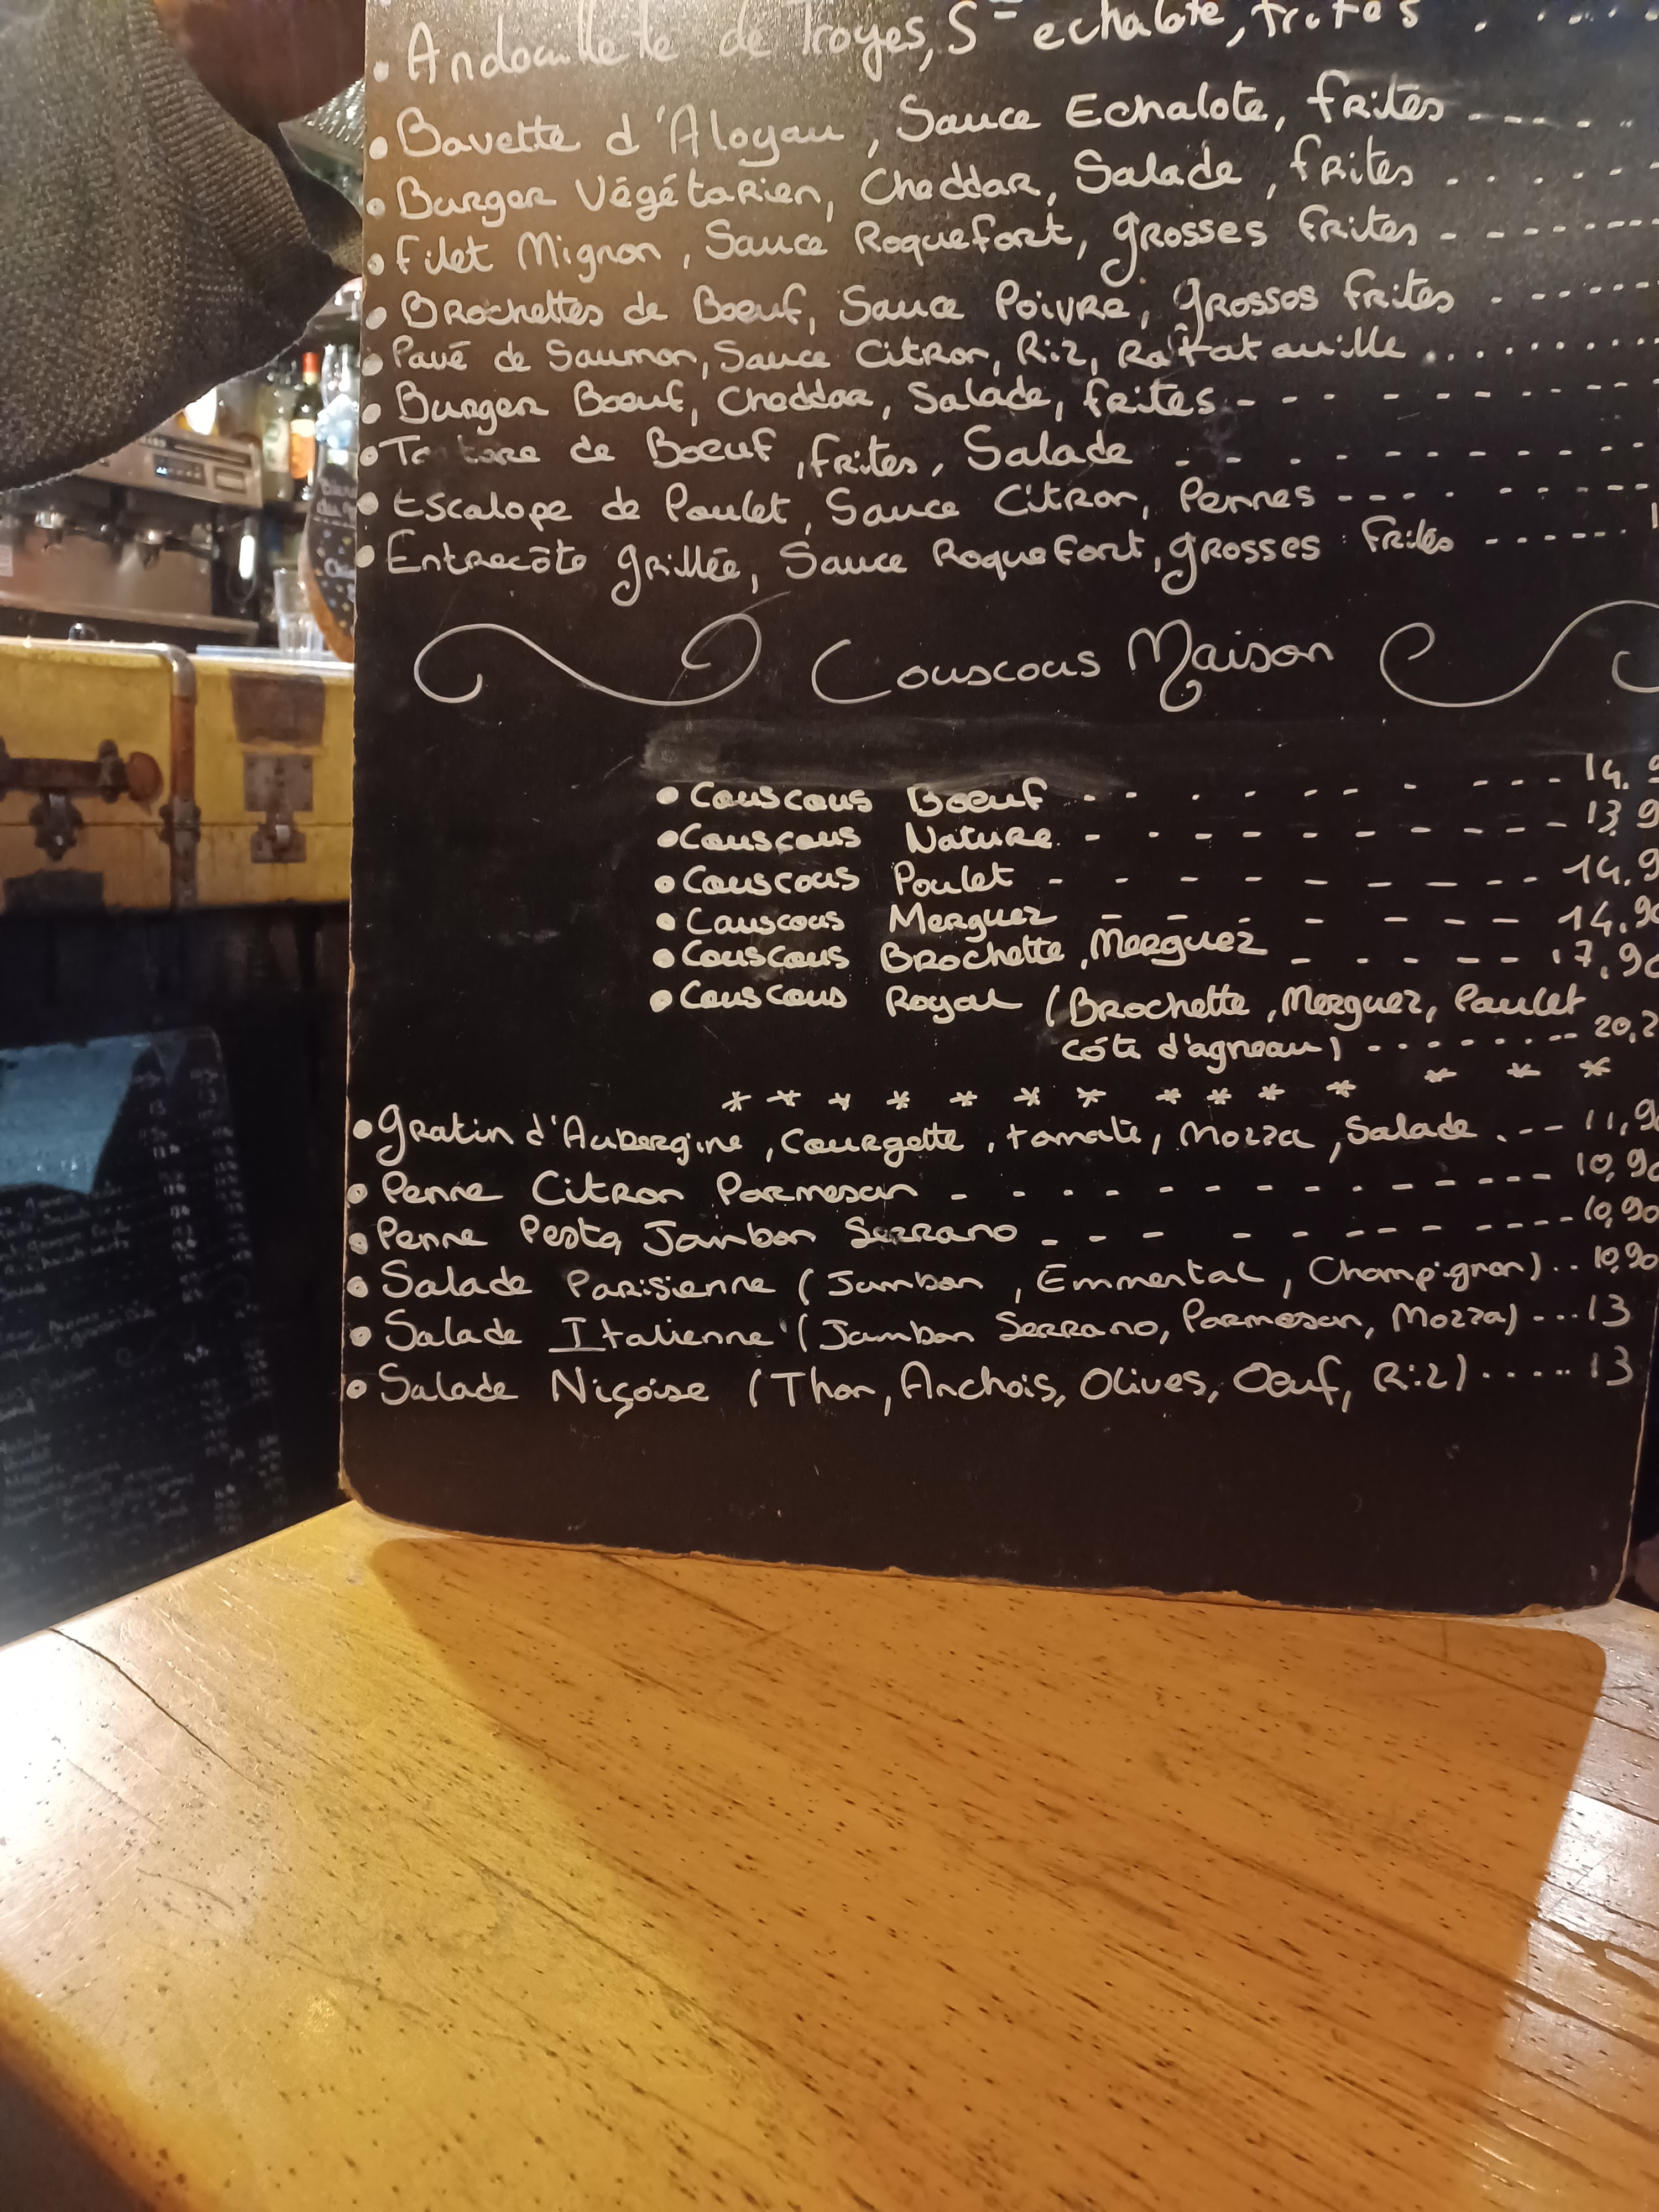 • Andouillete de Troyes, S= echalote, frites . . . . .
• Bavette d'Aloyau, Sauce Echalote, frites - - - - . .
• Burger Végétarien, Cheddar, Salade, frites . . . . . .
• Filet Mignon, Sauce Roquefort, grosses frites - - - - - - -
• Brochettes de Boeuf, Sauce Poivre, grosses frites - - - - - -
• Pavé de Saumon, Sauce Citron, Riz, Ratatouille . . . . . . . .
• Burger Boeuf, Cheddar, Salade, frites - - - - - - - - - -
• de Boeuf, frites, Salade - - - - - - - - - -
• Escalope de Poulet, Sauce Citron, Pennes - - - - - - - - -
• Entrecôte grillée, Sauce Roquefort, grosses frites - - - - - -
Couscous Maison
• Couscous Boeuf - - - - - - - - - - 14.9
• Couscous Nature - - - - - - - - - - 13,9
• Couscous Poulet - - - - - - - - - 14,9
• Couscous Merguez - - - - - - - 14,90
• Couscous Brochette, Merguez - - - - - 17,90
• Couscous Royal (Brochette, Merguez, Poulet
côte d'agneau) - - - - - - - - - 20,2
* * * * * * * * * * * * * *
• gratin d'Aubergine, Courgette, tomate, Mozza, Salade . - - 11,90
• Penne Citron Parmesan - - - - - - - - - - - - - 10,90
• Penne Pesto, Jambon Serrano - - - - - - - - - - - 10,90
• Salade Parisienne (Jambon, Emmental, Champignon) . . 10,90
• Salade Italienne (Jambon Serrano, Parmesan, Mozza) - - - . 13
• Salade Niçoise (Thon, Anchois, Olives, Oeuf, Riz) . . . . . . 13